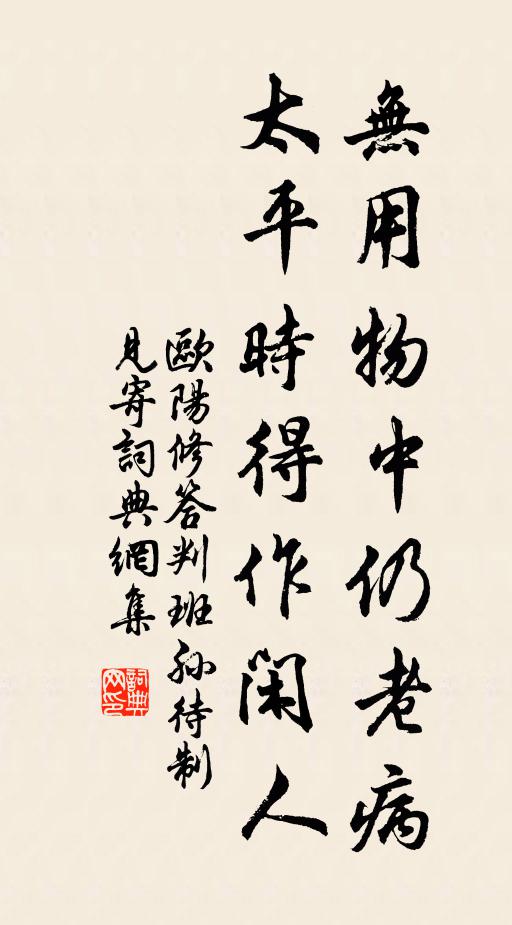 無用物中仍老病
太平時得作閑人
歐陽修答判班孫待制
見寄詞典網集
詞典
网印